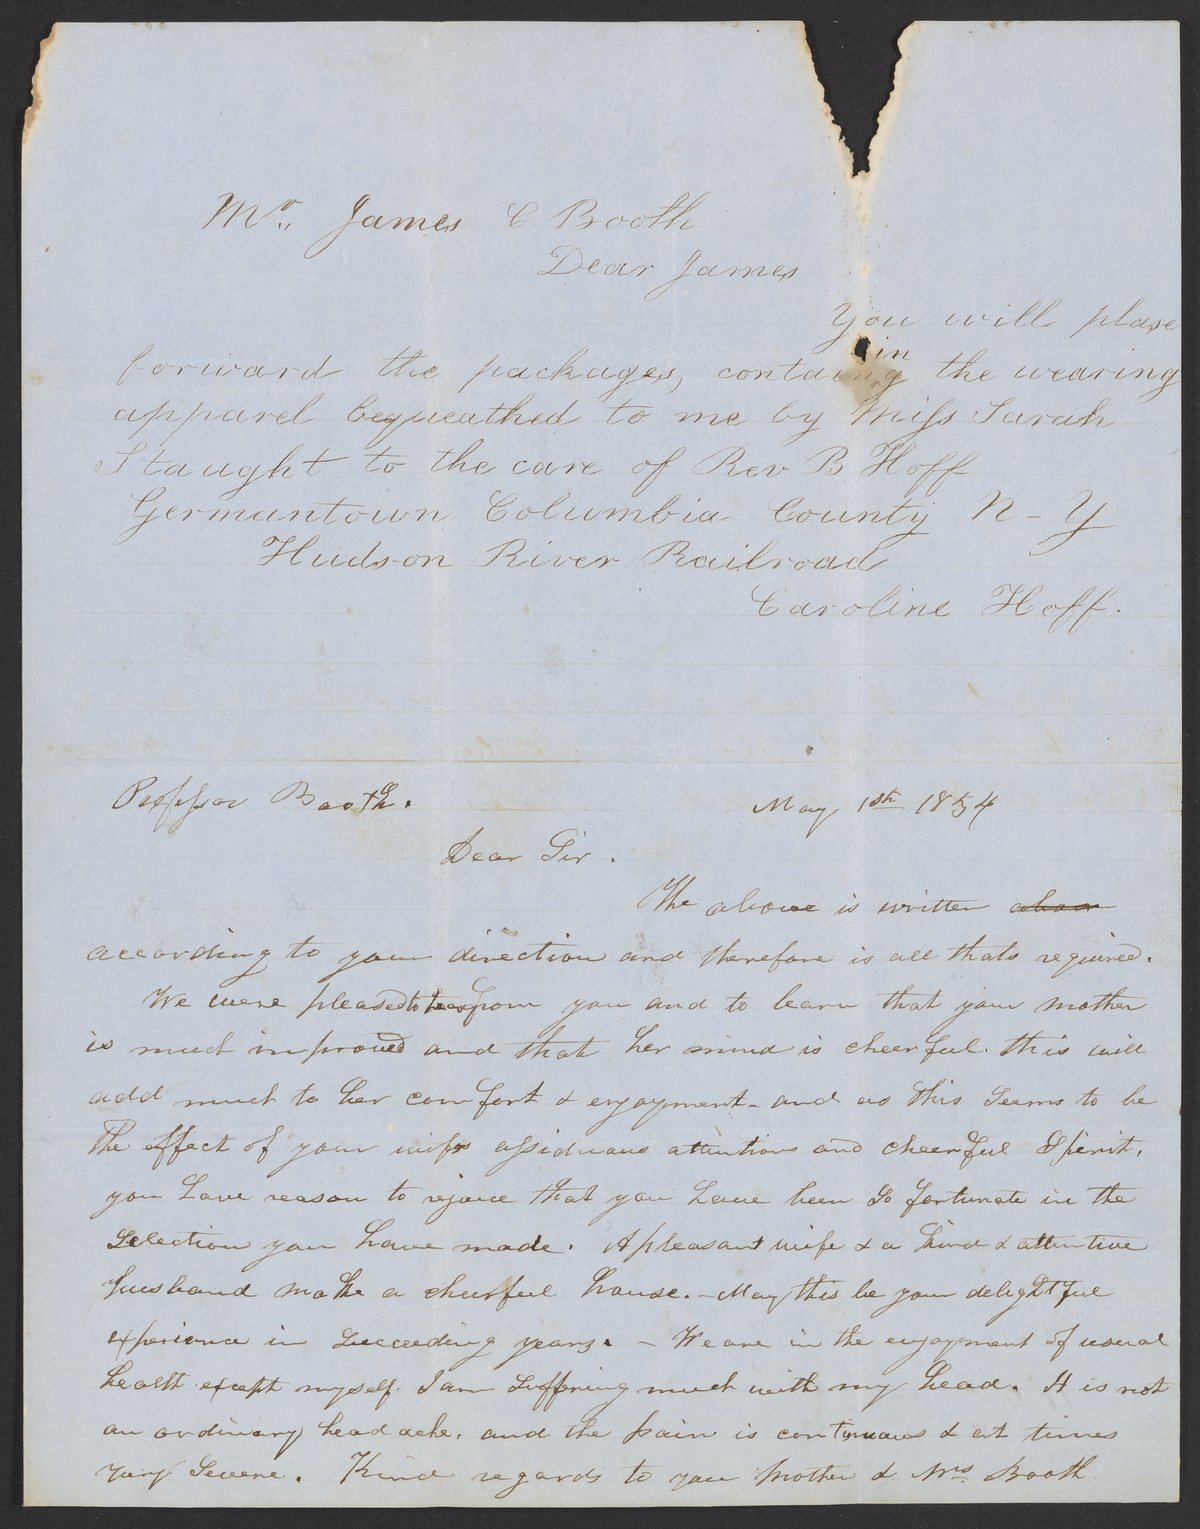 Mr. James C Booth
Dear James
You will plase
forward the packages, containing the wearing
in
apparel bequeathed to me by Miss Sarah
Staught to the care of Rev B Hoff
Germantown Columbia County N-Y
Hudson River Railroad
Caroline Hoff.
Professor Booth. May 1st 1854
Dear Sir.
The above is written above
according to your direction and therefore is all thats required.
We were pleased to hear from you and to learn that your mother
is much improved and that her mind is cheerful. this will
add much to her comfort & enjoyment- and as this seems to be
the effect of your wifes assiduous attentions and cheerful Spirit,
you have reason to rejoice that you have been so fortunate in the
Selection you have made. A pleasant wife & a kind & attentive
husband make a cheerful house. - May this be your delightful
experience in Succeeding years. - We are in the enjoyment of usual
health except myself. I am Suffering much with my head. It is not
an ordinary head ache. and the pain is continuous & at times
very Severe. Kind regards to you Mother & Mrs Booth